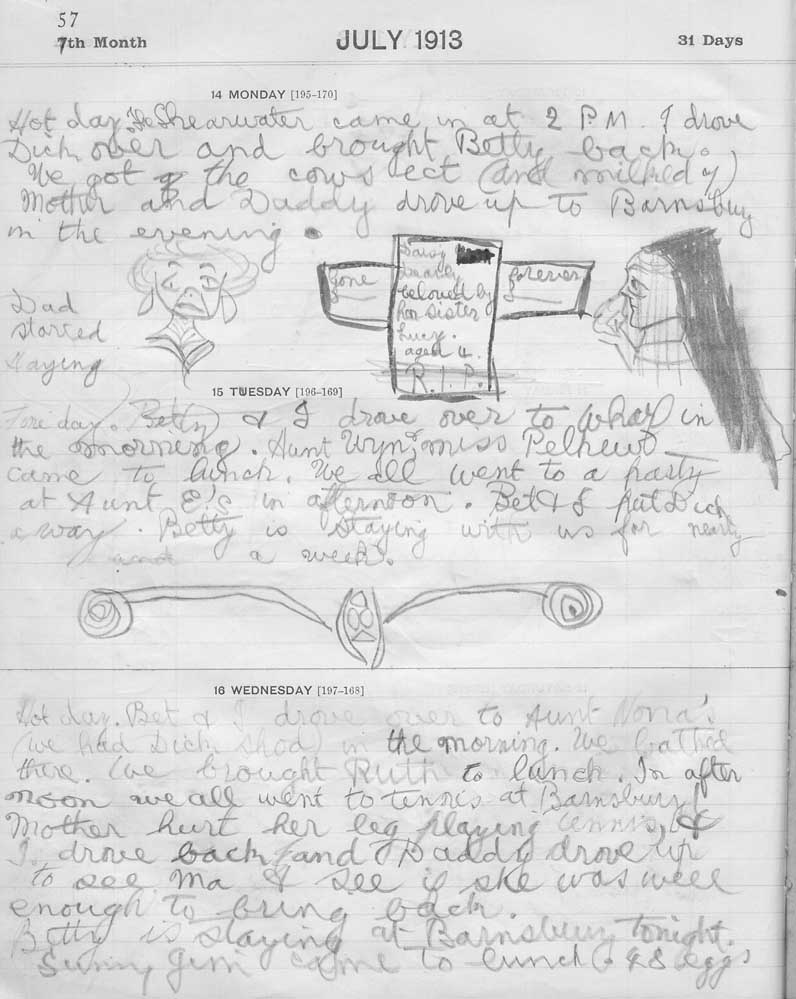 57
7th Month JULY 1913 31 Days
14 MONDAY [195-170]
Hot day. The Shearwater came in at 2 P.M. I drove
Dick over and brought Betty back.
We got the cows ect (and milked y)
Mother and Daddy drove up to Barnsbury
in the evening.
Dad
started
Haying
gone
Daisy
dearly
beloved by
her sister
Lucy.
aged 4.
R.I.P.
forever
15 TUESDAY [196-169]
day. Betty & I drove over to wharf in
the morning. Aunt Wyn, miss
came to lunch. We all went to a party
at Aunt E's in afternoon. Bet & I put Dick
away. Betty is staying with us for nearly
a week.
16 WEDNESDAY [197-168]
Hot day. Bet & I drove over to Aunt Nona's
(we had Dick shod) in the morning. We bathed
there. We brought Ruth to lunch. In after
noon we all went to tennis at Barnsbury!
Mother hurt her leg playing tennis, &
I drove back and Daddy drove up
to see Ma & see if she was well
enough to bring back.
Betty is staying at Barnsbury tonight.
Sunny Jim came to lunch 48 eggs